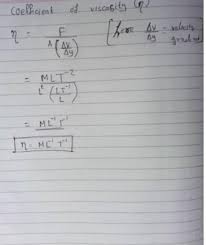 Coefficient of viscosity (η)
η = F / A (Δv/Δy) [here Δv/Δy = velocity gradient]
= MLT⁻² / L² (LT⁻¹/L)
= ML⁻¹T⁻¹
η = ML⁻¹T⁻¹